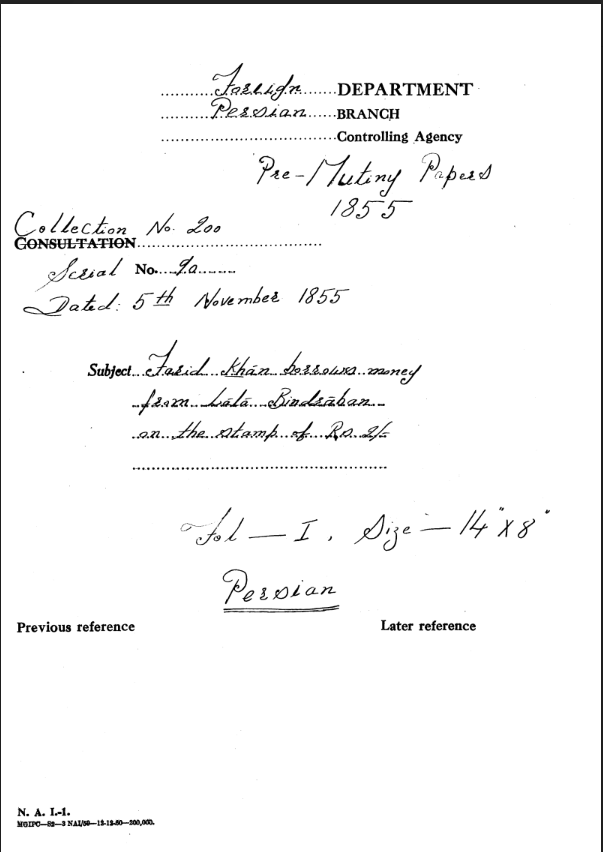 Foreign DEPARTMENT
Persian BRANCH
Controlling Agency
Pre-Mutiny Papers
1855
Collection No. 200
CONSULTATION
Serial No. 9a
Dated: 5th November 1855
Subject Farid Khán borrows money
from Lálá Bindrában
on the stamp of Rs. 2/-
Fol — I. Size — 14" x 8"
Persian
Previous reference Later reference
N. A. I.-1.
MGIPC—S2—3 NAI/59—12-12-50—200,000.